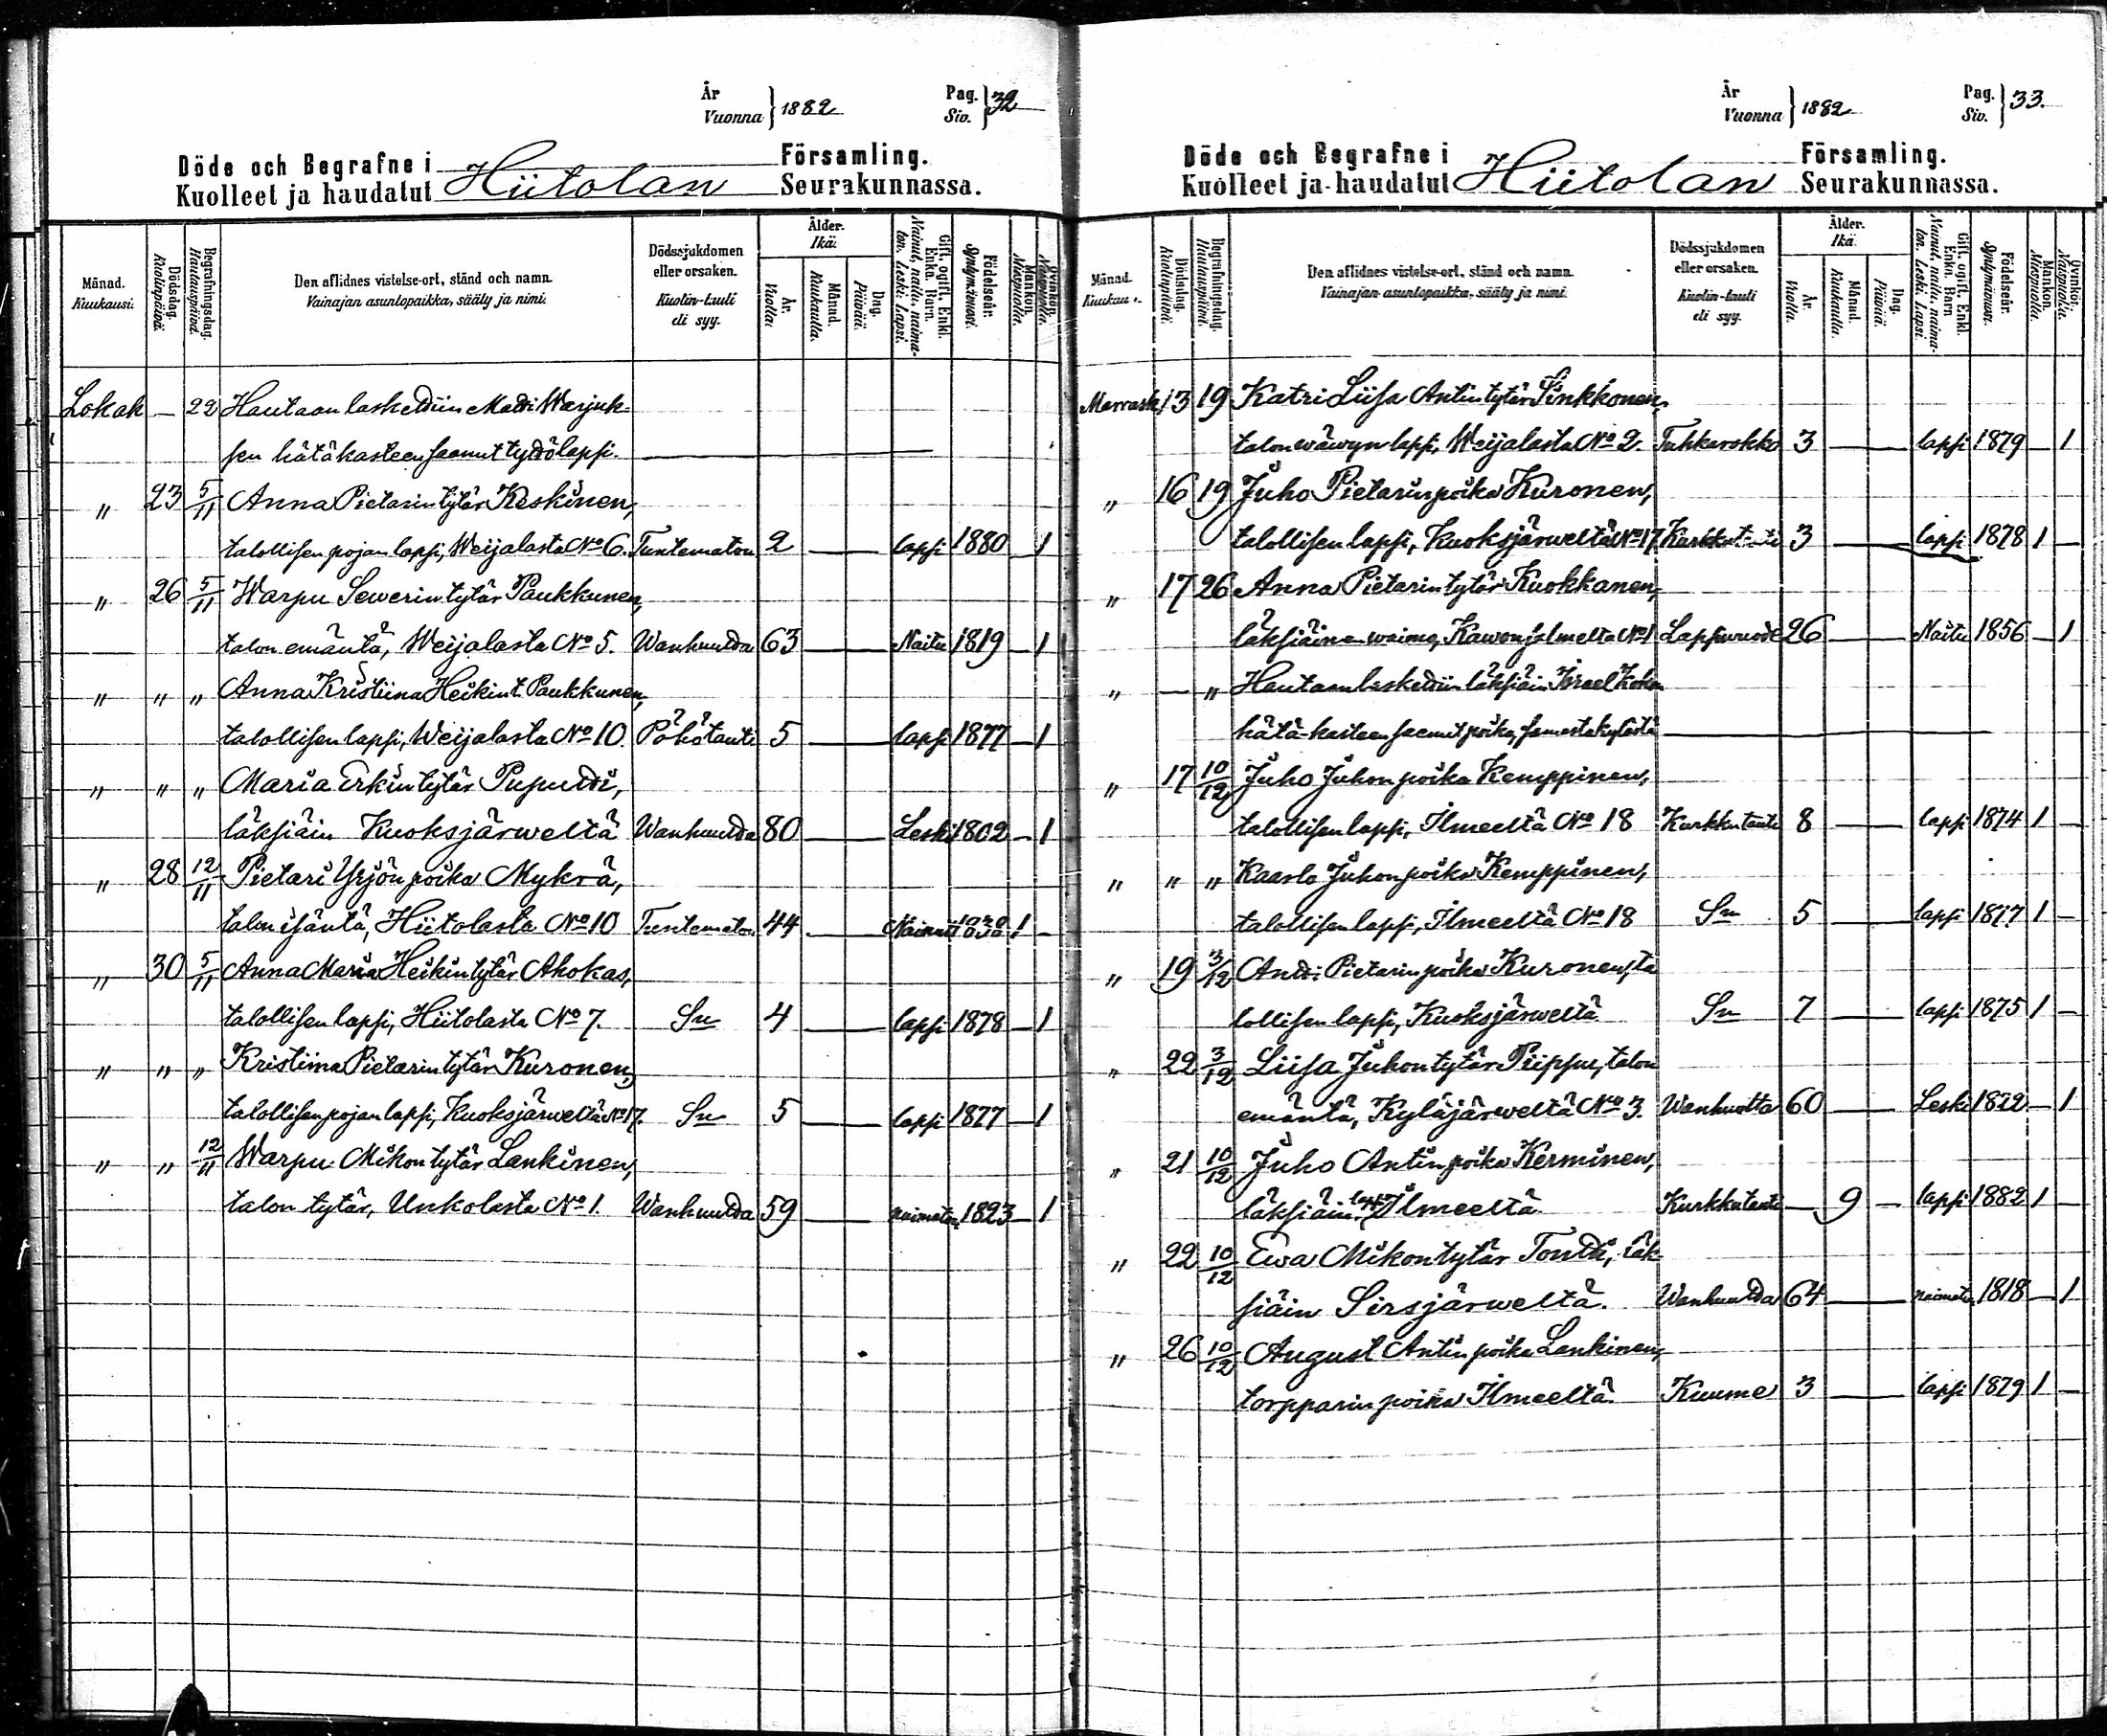 År
Vuonna } 1882
Pag.
Siv. } 32
Döde och Begrafne i
Kuolleet ja haudatut Hiitolan Församling.
Seurakunnassa.
Månad. Kuukausi.
Dödsdag. Kuolinpäivä.
Begrafningsdag. Hautauspäivä.
Den aflidnes vistelse-ort, stånd och namn.
Vainajan asuntopaikka, sääty ja nimi.
Dödssjukdomen eller orsaken.
Kuolin-tauti eli syy.
Ålder. Ikä.
År. Vuotta.
Månad. Kuukautta.
Dag. Päivää.
Gift, ogift, Enkl. Enka, Barn.
Nainut, naitu, naimaton. Leski. Lapsi.
Födelseår. Syntymävuosi.
Mankön. Miespuolia.
Qvinkön. Naispuolia.
Lokak — 22 Hautaan laskettiin Matti Warjuk-
sen hätäkasteen saanut tyttölapsi.
" 23 5/11 Anna Pietarintytär Keskinen,
talollisen pojan lapsi, Weijalasta No 6. Tuntematon 2 — lapsi 1880 — 1
" 26 5/11 Warpu Sewerintytär Paukkunen,
talon emäntä, Weijalasta No 5. Wanhuutta 63 — Naitu 1819 — 1
" " " Anna Kristiina Heikint. Paukkunen,
talollisen lapsi, Weijalasta No 10. Pöhötauti 5 — lapsi 1877 — 1
" " " Maria Erkintytär Puputti,
läksiäin Kuoksjärweltä Wanhuutta 80 — Leski 1802 — 1
" 28 12/11 Pietari Yrjönpoika Mykrä,
talon isäntä, Hiitolasta No 10 Tuntematon 44 — Nainut 1838 1 —
" 30 5/11 Anna Maria Heikintytär Ahokas,
talollisen lapsi, Hiitolasta No 7. Sn 4 — lapsi 1878 — 1
" " " Kristiina Pietarintytär Kuronen,
talollisen pojan lapsi, Kuoksjärweltä No 17. Sn 5 — lapsi 1877 — 1
" " 12/11 Warpu Mikontytär Lankinen,
talon tytär, Unkolasta No 1. Wanhuutta 59 — naimaton 1823 — 1
År
Vuonna } 1882
Pag.
Siv. } 33.
Döde och Begrafne i
Kuolleet ja haudatut Hiitolan Församling.
Seurakunnassa.
Månad. Kuukausi.
Dödsdag. Kuolinpäivä.
Begrafningsdag. Hautauspäivä.
Den aflidnes vistelse-ort, stånd och namn.
Vainajan asuntopaikka, sääty ja nimi.
Dödssjukdomen eller orsaken.
Kuolin-tauti eli syy.
Ålder. Ikä.
År. Vuotta.
Månad. Kuukautta.
Dag. Päivää.
Gift, ogift, Enkl. Enka, Barn
Nainut, naitu, naimaton. Leski. Lapsi.
Födelseår. Syntymävuosi.
Mankön. Miespuolia.
Qvinkön. Naispuolia.
Marrask 13 19 Katri Liisa Antintytär Sinkkonen,
talon wäwyn lapsi, Weijalasta No 2. Tuhkarokko 3 — lapsi 1879 — 1
" 16 19 Juho Pietarinpoika Kuronen,
talollisen lapsi, Kuoksjärweltä No 17 Kurkkutauti 3 — lapsi 1878 1 —
" 17 26 Anna Pietarintytär Kuokkanen,
läksiäinen waimo, No 1 Lapsiwuode 26 — Naitu 1856 — 1
" — " Hautaan laskettiin läksiäin Israel
hätä-kasteen saanut poika, samasta kylästä
" 17 10/12 Juho Juhonpoika Kemppinen,
talollisen lapsi, Ilmeeltä No 18 Kurkkutauti 8 — lapsi 1874 1 —
" " " Kaarlo Juhonpoika Kemppinen,
talollisen lapsi, Ilmeeltä No 18 Sn 5 — lapsi 1877 1 —
" 19 3/12 Antti Pietarinpoika Kuronen, ta
lollisen lapsi, Kuoksjärweltä Sn 7 — lapsi 1875 1 —
" 22 3/12 Liisa Juhontytär Piippu, talon
emäntä, Kyläjärweltä No 3. Wanhuutta 60 — Leski 1822 — 1
" 21 10/12 Juho Antinpoika Kerminen,
läksiäin lapsi Ilmeeltä Kurkkutauti — 9 — lapsi 1882 1 —
" 22 10/12 Ewa Mikontytär Tontti, läk-
siäin Sirsjärweltä. Wanhuutta 64 — naimaton 1818 — 1
" 26 10/12 August Antinpoika Lankinen,
torpparin poika Ilmeeltä. Kuume 3 — lapsi 1879 1 —